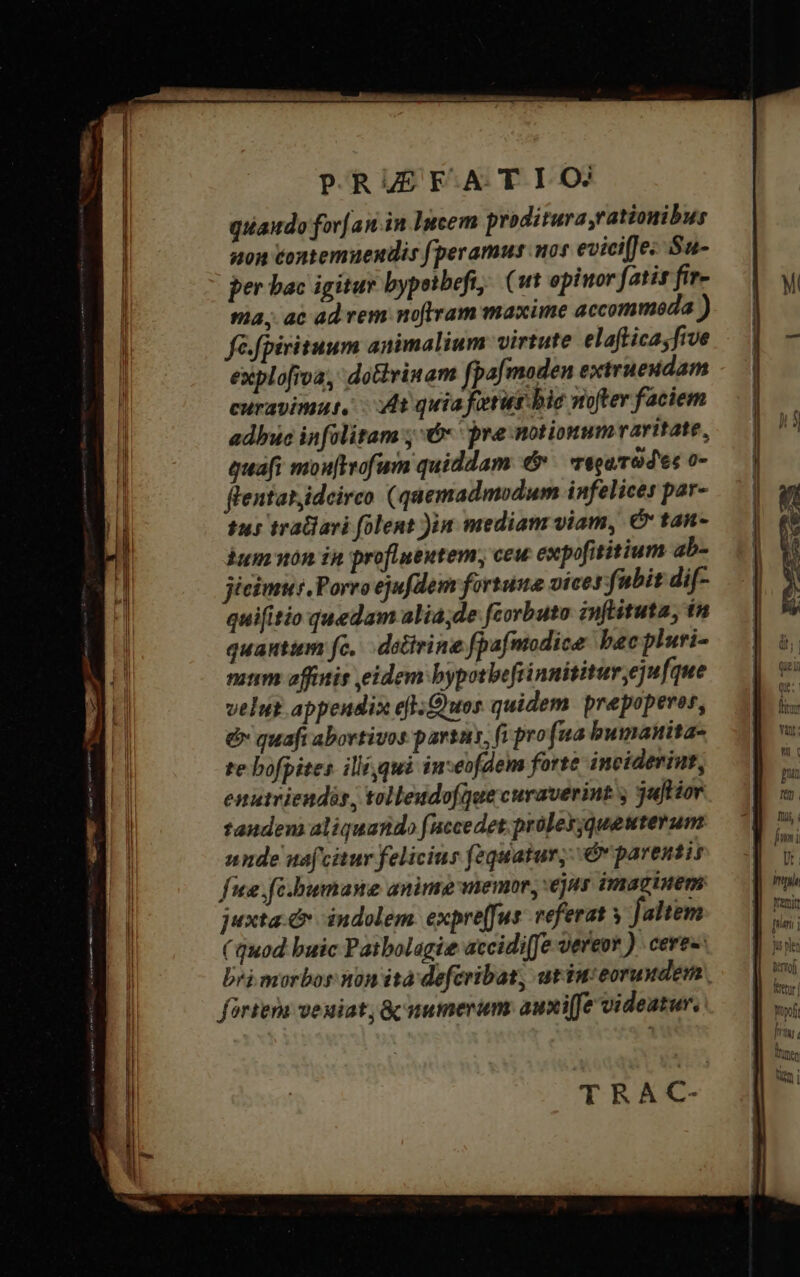 PRÆFATIO.
quando forſan in lucem proditura, rationibus
non contemnendis ſperamus nos eviciſſe. Su-
per hac igitur hypotheſi, (ut opinor ſatis fir-
ma, ac ad rem noſtram maxime accommoda)
ſc. ſpirituum animalium virtute elaſtica, ſive
exploſiva, doctrinam ſpaſmωden extruendam
curavimus. At quia fœtus hic noſter faciem
adhuc inſolitam, & præ notionum raritate,
quaſi monſtroſum quiddam & τερατῶδες o-
ſtentat, idcirco (quemadmodum infelices par-
tus tractari ſolent) in mediam viam, & tan-
tum non in profluentem, ceu expoſititium ab-
jicimus. Porro ejuſdem fortunæ vices ſubit diſ-
quiſitio quædam alia, de ſcorbuto inſtituta, in
quantum ſc. doctrinæ ſpaſmodicæ hæc pluri-
mum affinis, eidem hypotheſi innititur, ejuſque
velut appendix eſt. Quos quidem præpoperos,
& quaſi abortivos partus, ſi pro ſua humanita-
te hoſpites illi, qui in eoſdem forte inciderint,
enutriendos, tollendoſque curaverint, juſtior
tandem aliquando ſuccedet proles, quæ uterum
unde naſcitur felicius ſequatur, & parentis
ſuæ, ſc. humanæ animæ memor, ejus imaginem
juxta & indolem expreſſus referat, ſaltem
(quod huic Pathologiæ accidiſſe vereor) cere-
bri morbos non ità deſcribat, ut in eorundem
ſortem veniat, & numerum auxiſſe videatur.
TRAC-